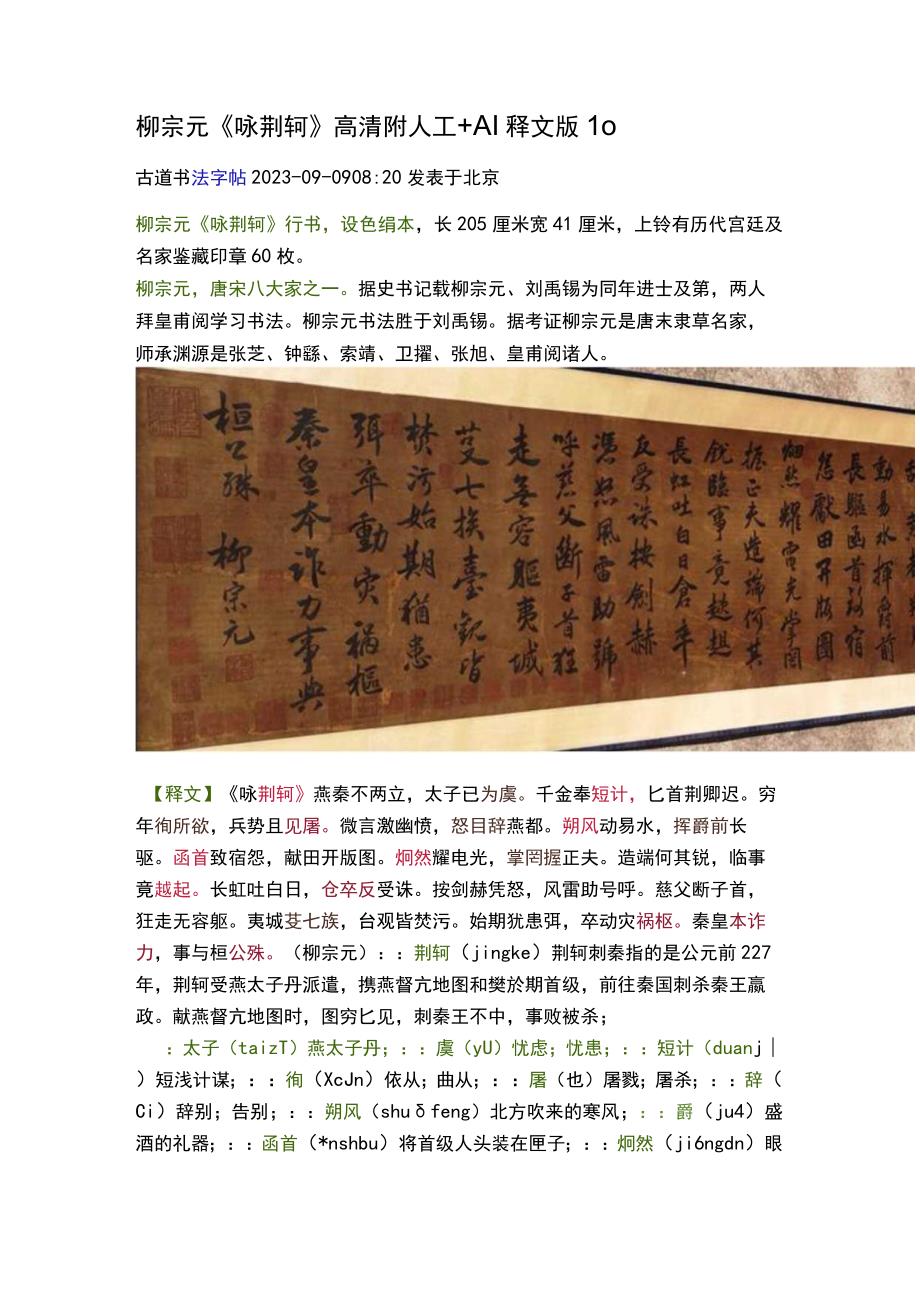 柳宗元《咏荆轲》高清附人工+AI释文版1o
古道书法字帖2023-09-0908:20发表于北京
柳宗元《咏荆轲》行书，设色绢本，长205厘米宽41厘米，上铃有历代宫廷及
名家鉴藏印章60枚。
柳宗元，唐宋八大家之一。据史书记载柳宗元、刘禹锡为同年进士及第，两人
拜皇甫阅学习书法。柳宗元书法胜于刘禹锡。据考证柳宗元是唐末隶草名家，
师承渊源是张芝、钟繇、索靖、卫擢、张旭、皇甫阅诸人。
動易水揮爵前
長驅函首致宿
怨獻田開版圖
炯然耀電光掌罔
握正夫造端何其
銳臨事竟趑趄
長虹吐白日倉卒
反受誅按劍赫
憑怒風雷助號
呼慈父斷子首狂
走無容軀夷城
芟七族臺觀皆
焚污始期猶患
弭卒動灾禍樞
秦皇本詐力事與
桓公殊 柳宗元
【释文】《咏荆轲》燕秦不两立，太子已为虞。千金奉短计，匕首荆卿迟。穷
年徇所欲，兵势且见屠。微言激幽愤，怒目辞燕都。朔风动易水，挥爵前长
驱。函首致宿怨，献田开版图。炯然耀电光，掌罔握正夫。造端何其锐，临事
竟越起。长虹吐白日，仓卒反受诛。按剑赫凭怒，风雷助号呼。慈父断子首，
狂走无容躯。夷城芟七族，台观皆焚污。始期犹患弭，卒动灾祸枢。秦皇本诈
力，事与桓公殊。（柳宗元）：：荆轲（jingke）荆轲刺秦指的是公元前227
年，荆轲受燕太子丹派遣，携燕督亢地图和樊於期首级，前往秦国刺杀秦王嬴
政。献燕督亢地图时，图穷匕见，刺秦王不中，事败被杀；
：太子（taizT）燕太子丹；：：虞（yU）忧虑；忧患；：：短计（duanj｜
）短浅计谋；：：徇（XcJn）依从；曲从；：：屠（也）屠戮；屠杀；：：辞（
Ci）辞别；告别；：：朔风（shuδfeng）北方吹来的寒风；：：爵（ju4）盛
酒的礼器；：：函首（*nshbu）将首级人头装在匣子；：：炯然（ji6ngdn）眼